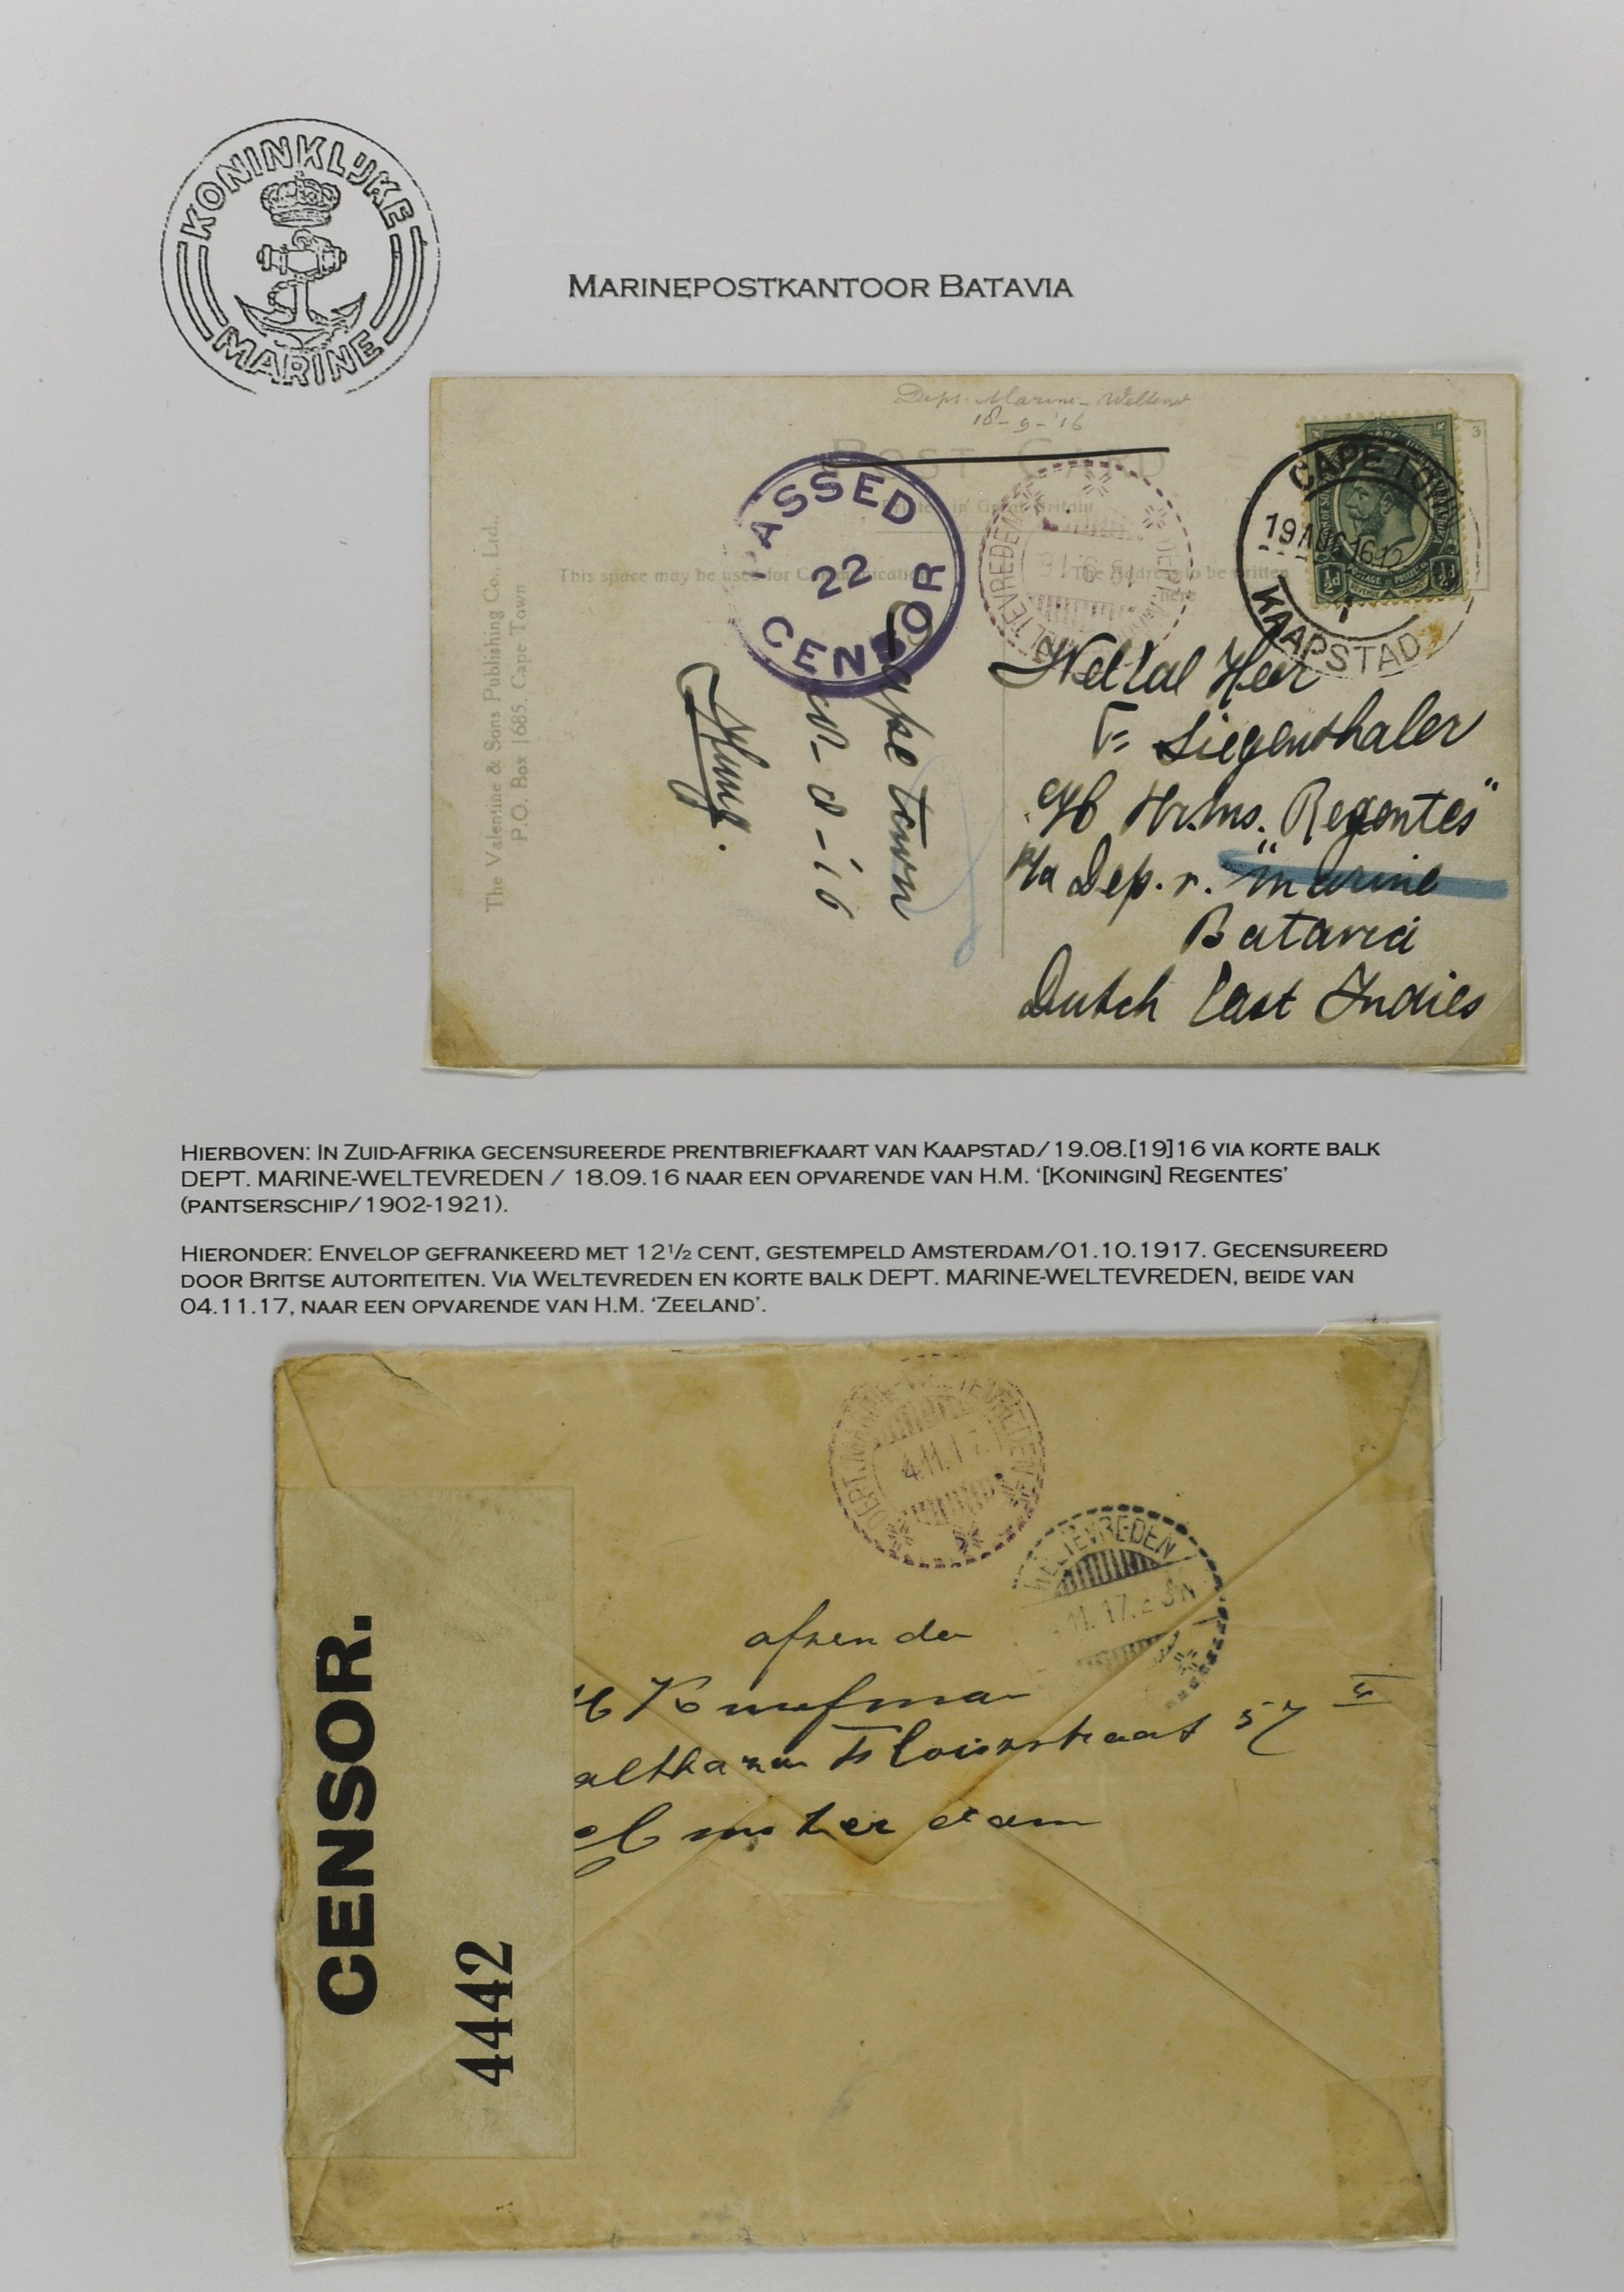 KONINKLIJKE
MARINE
MARINEPOSTKANTOOR BATAVIA
Dept. Marine-Weltevr
18-9-'16
POST CARD
Printed in Great Britain
This space may be used for Communication
The Address to be written
here
The Valentine & Sons Publishing Co., Ltd.,
P.O. Box 1685. Cape Town
PASSED
22
CENSOR
DEPT. MARINE-WELTEVREDEN
18.9.16
CAPE TO
19 AUG 1612
KAAPSTAD
½d
POSTAGE
REVENUE
½d
3
Cape Town
-8-16
Wel.Ed. Heer
F= Siegenthaler
a/b Hr.Ms. Regentes"
P/a Dep. v. "Marine
Batavia
Dutch East Indies
HIERBOVEN: IN ZUID-AFRIKA GECENSUREERDE PRENTBRIEFKAART VAN KAAPSTAD/19.08.[19]16 VIA KORTE BALK
DEPT. MARINE-WELTEVREDEN / 18.09.16 NAAR EEN OPVARENDE VAN H.M. ‘[KONINGIN] REGENTES’
(PANTSERSCHIP/1902-1921).
HIERONDER: ENVELOP GEFRANKEERD MET 12½ CENT, GESTEMPELD AMSTERDAM/01.10.1917. GECENSUREERD
DOOR BRITSE AUTORITEITEN. VIA WELTEVREDEN EN KORTE BALK DEPT. MARINE-WELTEVREDEN, BEIDE VAN
04.11.17, NAAR EEN OPVARENDE VAN H.M. ‘ZEELAND’.
DEPT. MARINE-WELTEVREDEN
4.11.17
WELTEVREDEN
.11.17.
CENSOR.
4442
afzender
althazar Floriszstraat 57 II
Amsterdam